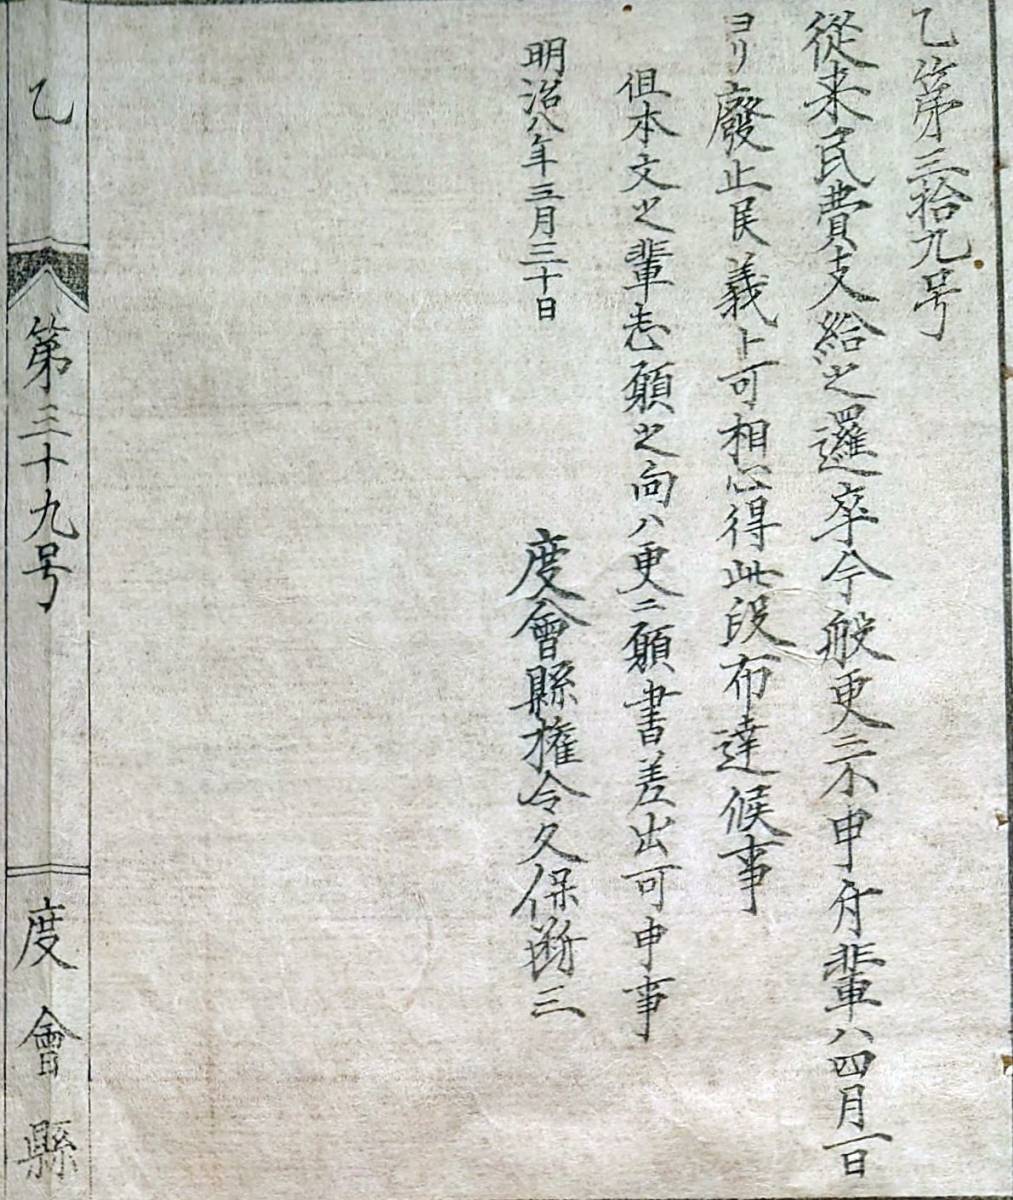 乙第三拾九号
從来民費支給之邏卒今般更ニ不申付輩ハ四月一日
ヨリ廢止民義ト可相心得此段布達候事
但本文之輩志願之向ハ更ニ願書差出可申事
明治八年三月三十日
度會縣権令久保断三
乙 第三十九号 度會縣